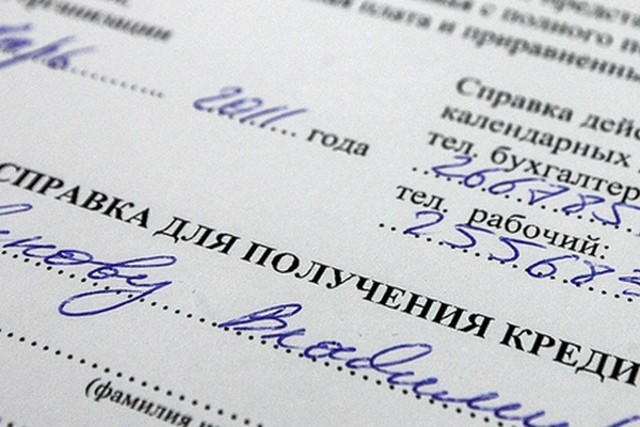 организации
плата и приравненны
2011 года
Справка дей
календарных
тел. бухгалтер
266785
тел. рабочий:
25568
СПРАВКА ДЛЯ ПОЛУЧЕНИЯ КРЕДИ
нову Владими
(фамилия